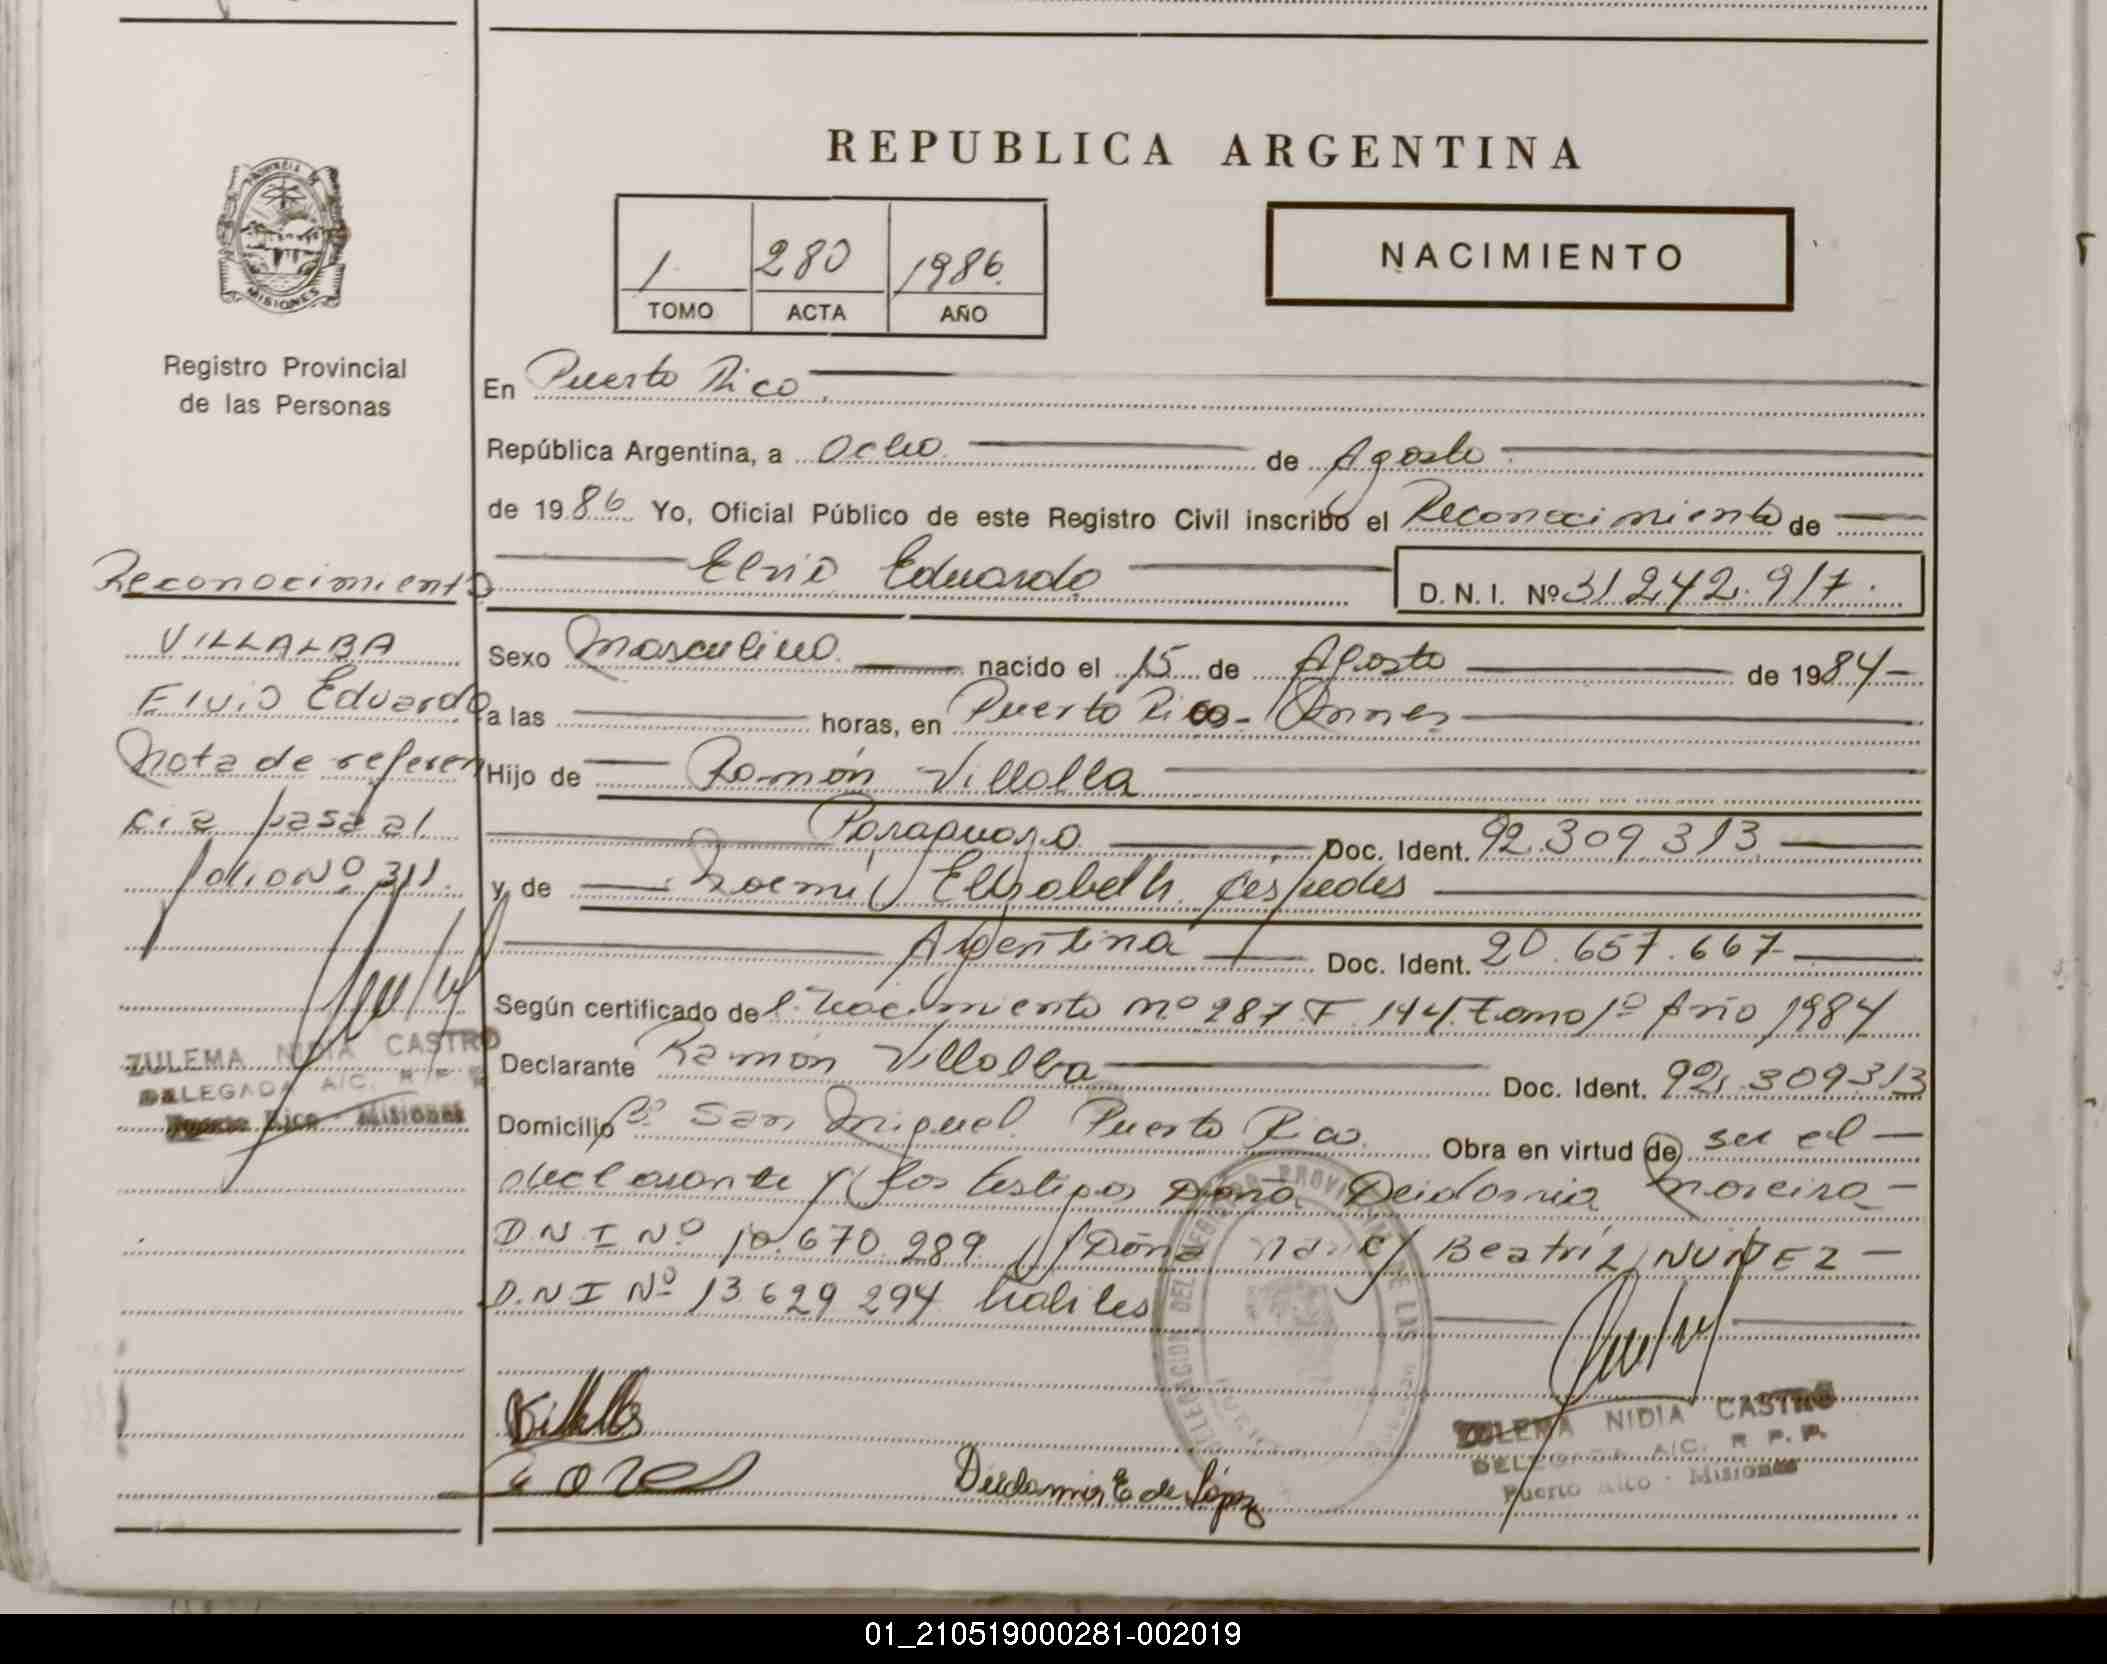 REPUBLICA ARGENTINA
PROVINCIA DE
MISIONES
1 280 1986
TOMO ACTA AÑO
NACIMIENTO
Registro Provincial
de las Personas
En Puerto Rico
República Argentina, a Ocho de Agosto
de 1986 Yo, Oficial Público de este Registro Civil inscribo el Reconocimiento de
Elvio Eduardo D. N. I. Nº 31242.917.
Reconocimiento
VILLALBA
Elvio Eduardo
Nota de referen
cia pasa al
folio Nº 311.
ZULEMA NIDIA CASTRO
DELEGADA A/C. R P P
Puerto Rico - Misiones
Sexo Masculino nacido el 15 de Agosto de 1984
a las horas, en Puerto Rico - Mnes
Hijo de Ramón Villalba
Paraguayo Doc. Ident. 92.309.313
y de Noemi Elisabeth Céspedes
Argentina Doc. Ident. 20.657.667
Según certificado de Nacimiento Nº 287 F 144 tomo 1º Año 1984
Declarante Ramón Villalba Doc. Ident. 92.309313
Domicilio Bº San Miguel Puerto Rico. Obra en virtud de ser el
declarante y los testigos Doña Deidamia Moreira
D.N.I Nº 10.670.289 y Doña Nancy Beatríz NUÑEZ
D.N.I Nº 13.629.294 habiles
DELEGACION DEL REGISTRO PROVINCIAL DE LAS
Deidamia E de López
ZULEMA NIDIA CASTRO
DELEGADA A/C. R P. P.
Puerto Rico - Misiones
01_210519000281-002019